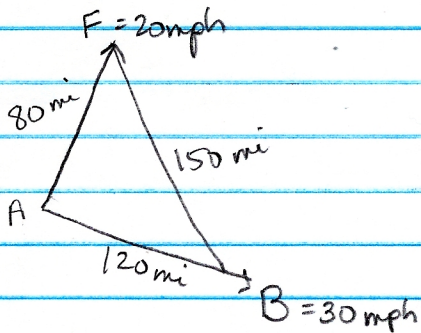 F = 20mph
80 mi
150 mi
A
120mi
B = 30 mph